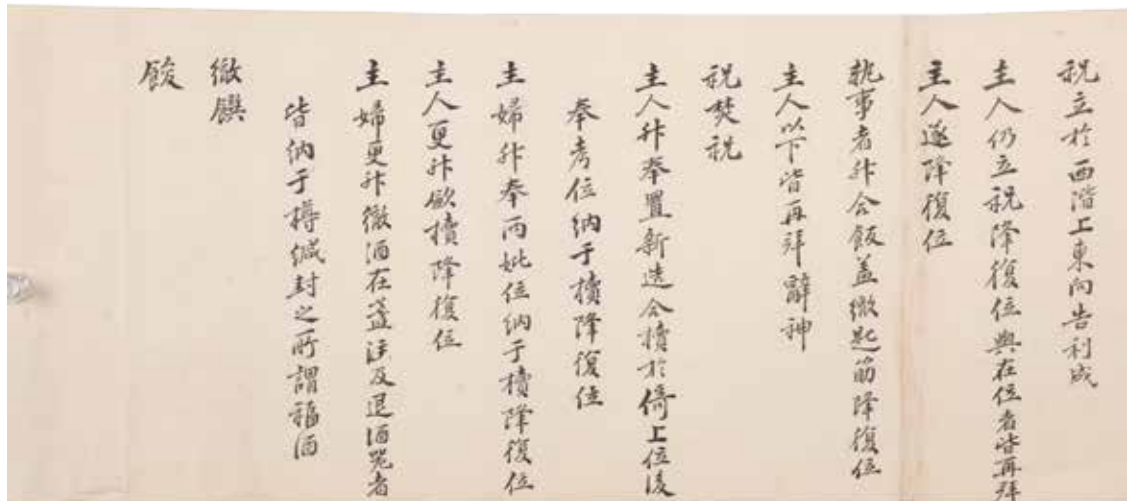 祝立於西階上東向告利成
主人仍立祝降復位與在位者皆再拜
主人遂降復位
執事者升合飯盖徹匙筯降復位
主人以下皆再拜辭神
祝焚祝
主人升奉置新造合櫝於倚上位後
奉考位納于櫝降復位
主婦升奉兩妣位納于櫝降復位
主人更升斂櫝降復位
主婦更升徹酒在盞注及退酒器者
皆納于樽緘封之所謂福酒
徹饌
餕